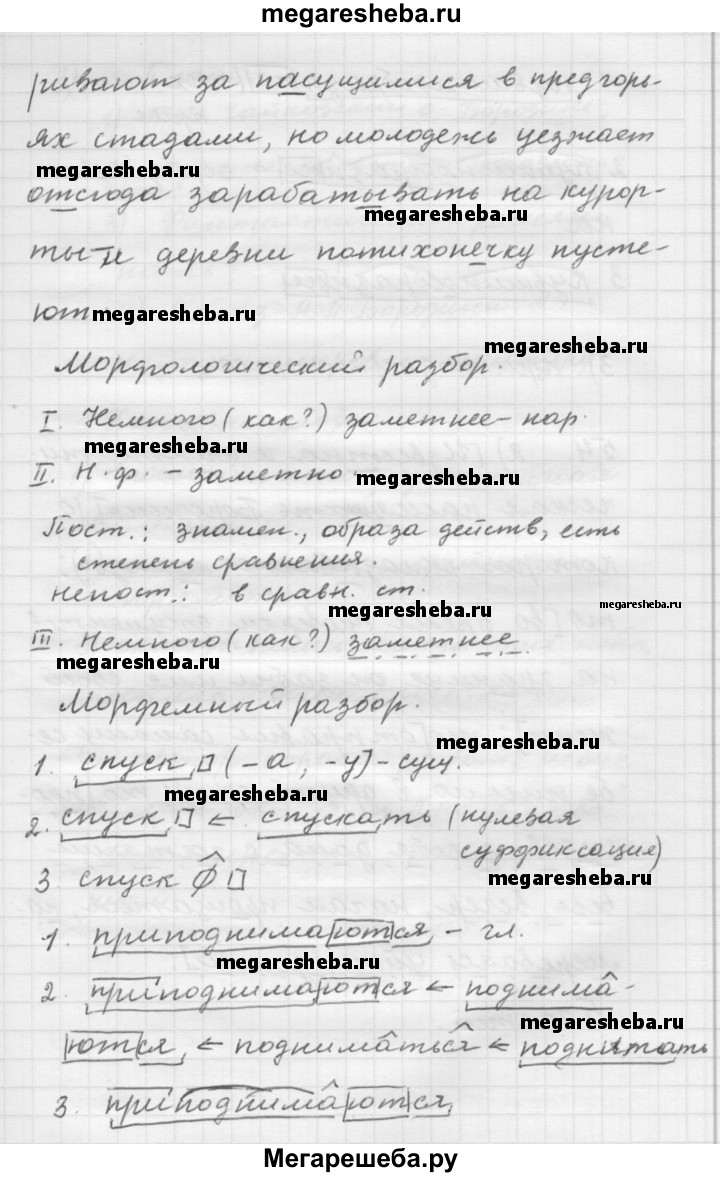 megaresheba.ru
ривают за пасущимися в предгорь-
ях стадами, но молодежь уезжает
megaresheba.ru
отсюда зарабатывать на курор-
megaresheba.ru
ты и деревни потихонечку пусте-
ют
megaresheba.ru
megaresheba.ru
Морфологический разбор.
I. Немного (как?) заметнее – нар.
megaresheba.ru
II. Н.ф. – заметно.
Пост.: знамен., образа действ, есть
степень сравнения.
Непост.: в сравн. ст.
megaresheba.ru
megaresheba.ru
III. Немного (как?) заметнее
megaresheba.ru
Морфемный разбор.
1. спуск □ (-а, -у) – сущ.
megaresheba.ru
2. спуск □ ← спускать (нулевая
суффиксация)
megaresheba.ru
3. спуск ∅ □
1. приподнимаются – гл.
megaresheba.ru
2. приподнимаются ← поднима-
megaresheba.ru
ются ← подниматься ←
megaresheba.ru
3. приподнимаются
Мегарешеба.ру